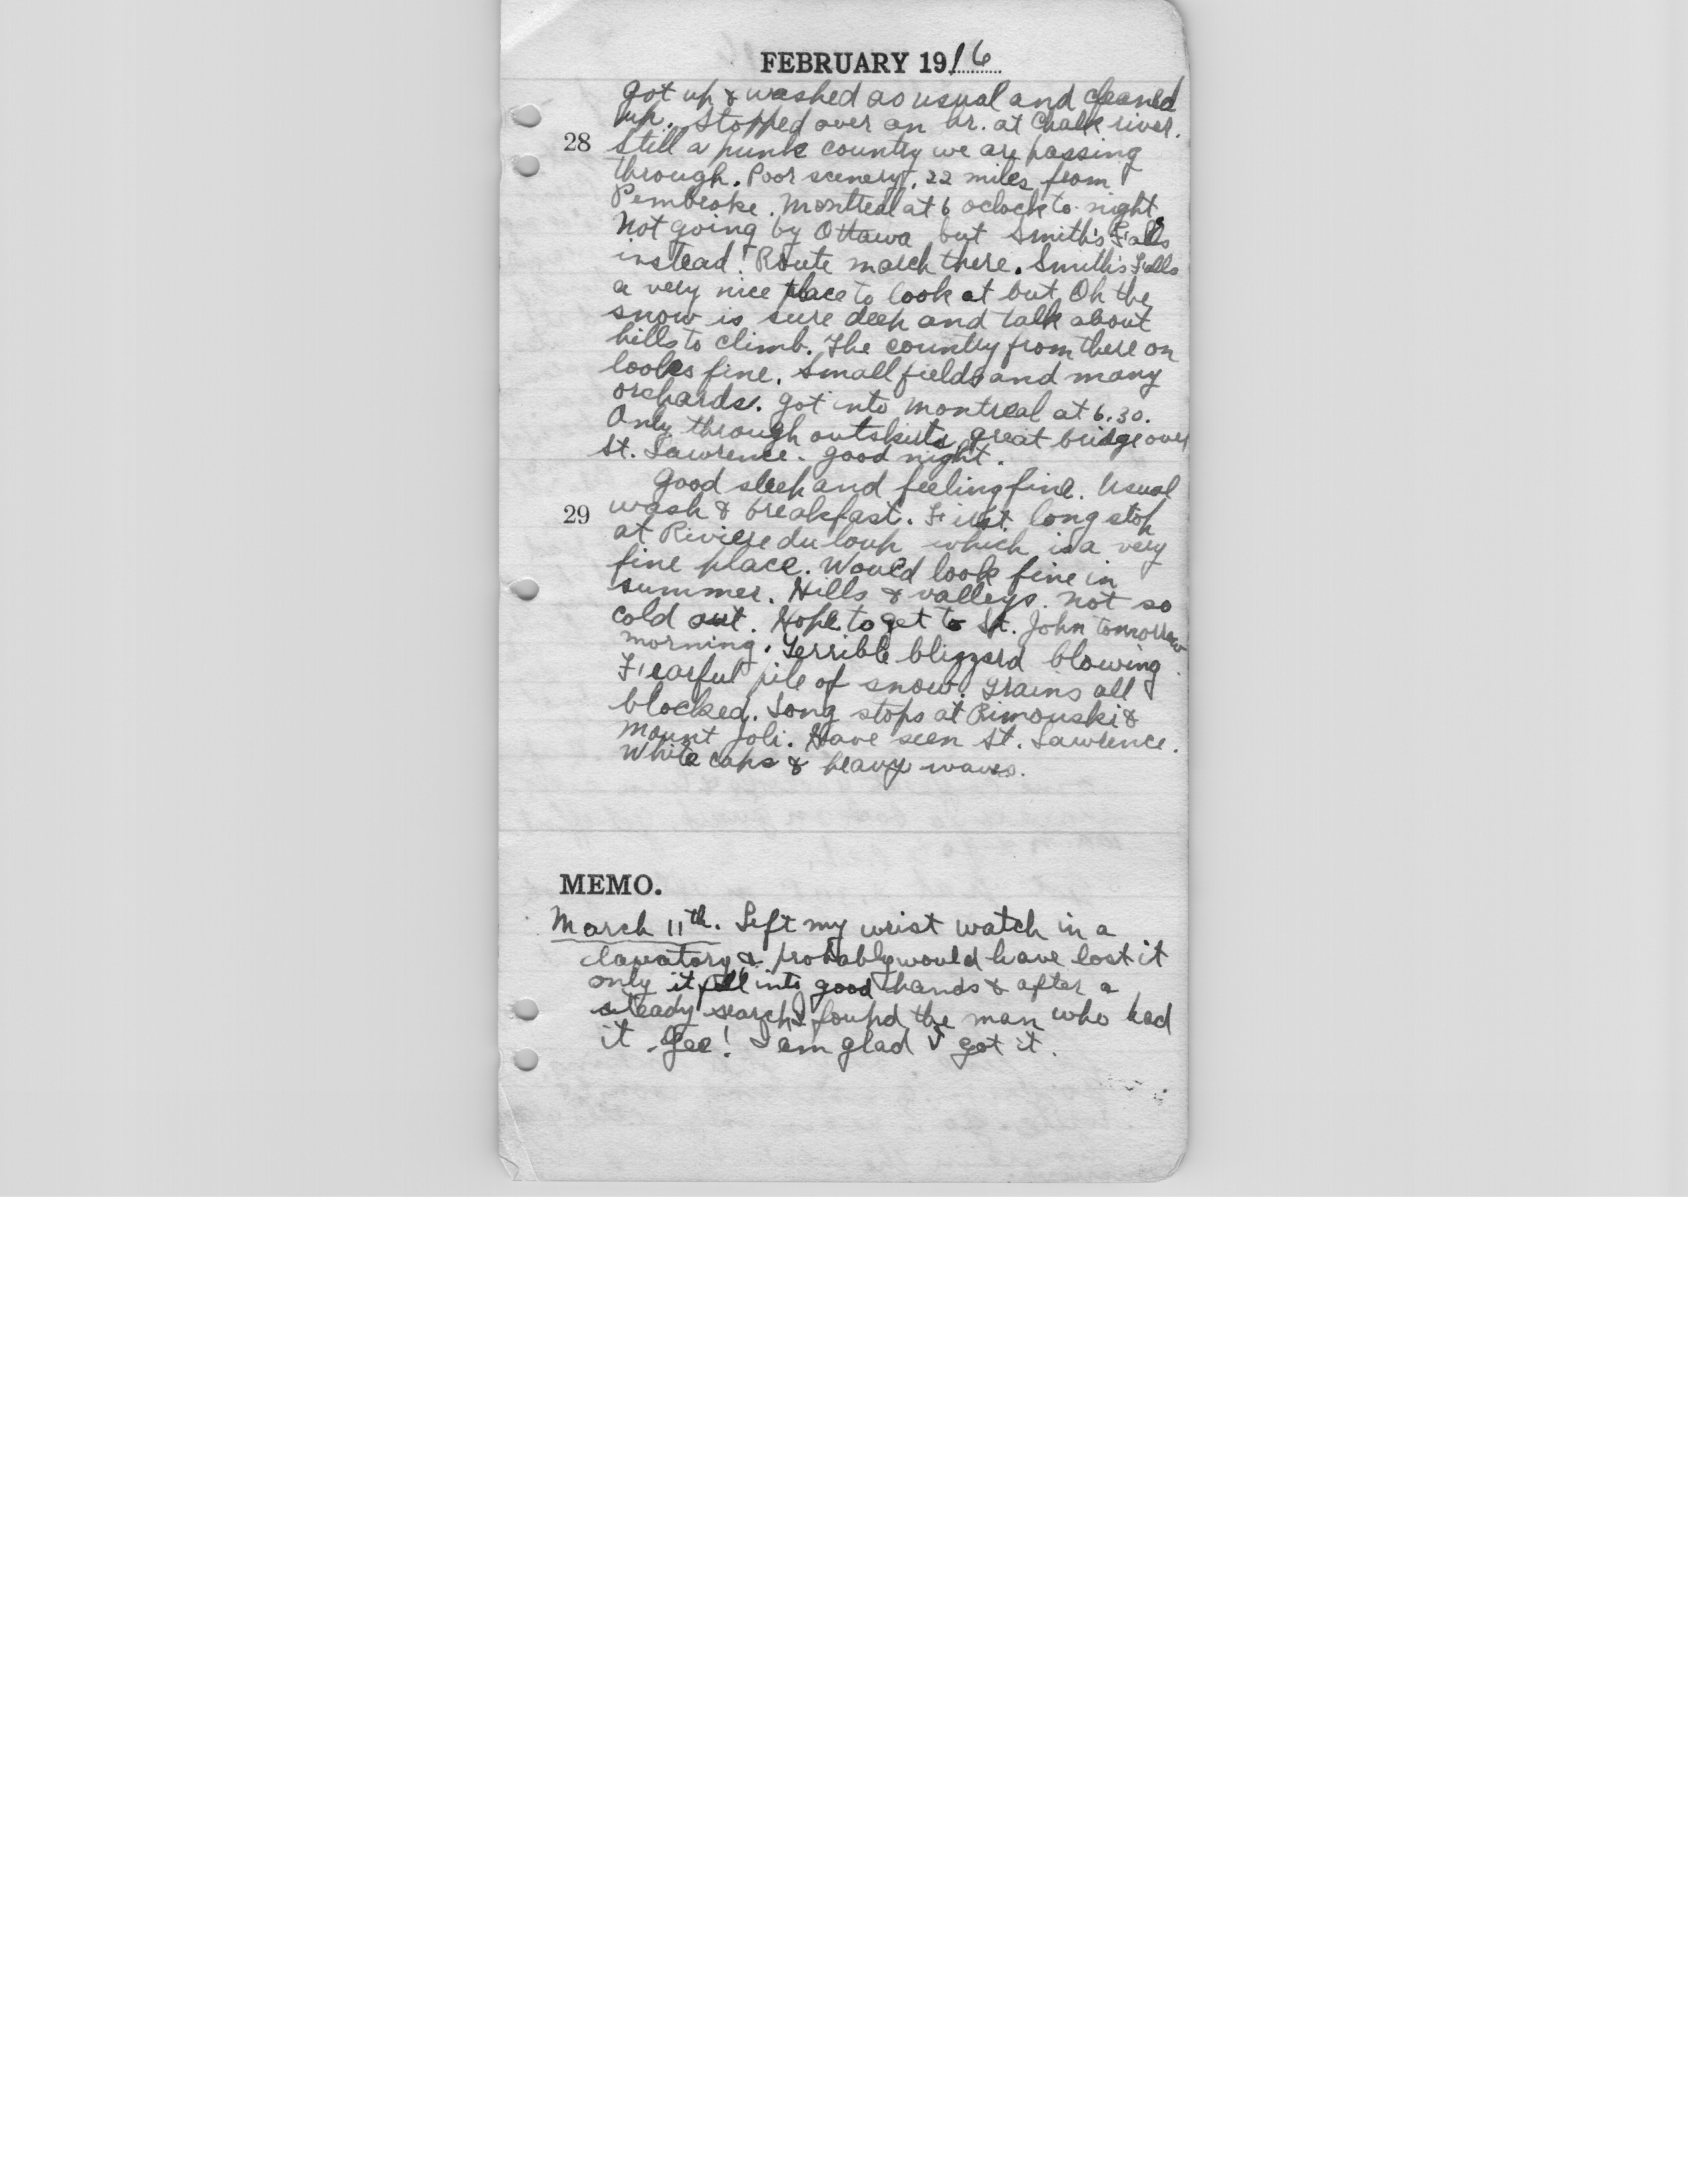 FEBRUARY 1916
Got up & washed as usual and cleaned
up. Stopped over an hr. at Chalk river.
28 Still a punk country we are passing
through. Poor scenery. 22 miles from
Pembroke. Montreal at 6 oclock to-night.
Not going by Ottawa but Smith's Falls
instead. Route march there. Smith's Falls
a very nice place to look at but Oh the
snow is sure deep and talk about
hills to climb. The country from there on
looks fine. Small fields and many
orchards. Got into Montreal at 6.30.
Only through outskirts, great bridge over
St. Lawrence. Good night.
Good sleep and feeling fine. Usual
29 wash & breakfast. First long stop
at Riviere du loup which is a very
fine place. Would look fine in
summer. Hills & valleys. Not so
cold out. Hope to get to St. John tomorrow
morning. Terrible blizzard blowing.
Fearful pile of snow. Trains all
blocked. Long stops at Rimouski &
Mount Joli. Have seen St. Lawrence.
White caps & heavy waves.
MEMO.
March 11th. Left my wrist watch in a
lavatory & probably would have lost it
only it fell into good hands & after a
steady search I found the man who had
it. Gee! I am glad I got it.